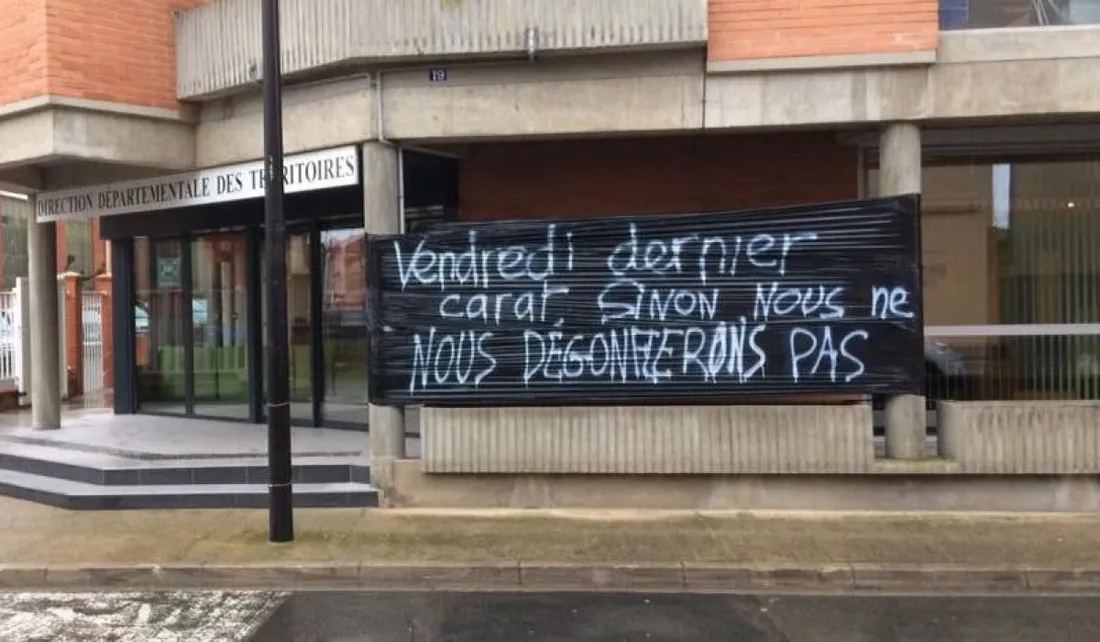 19
DIRECTION DÉPARTEMENTALE DES TERRITOIRES
Vendredi dernier
carat. SiNON, NOUS ne
NOUS DÉGONFLERONS PAS